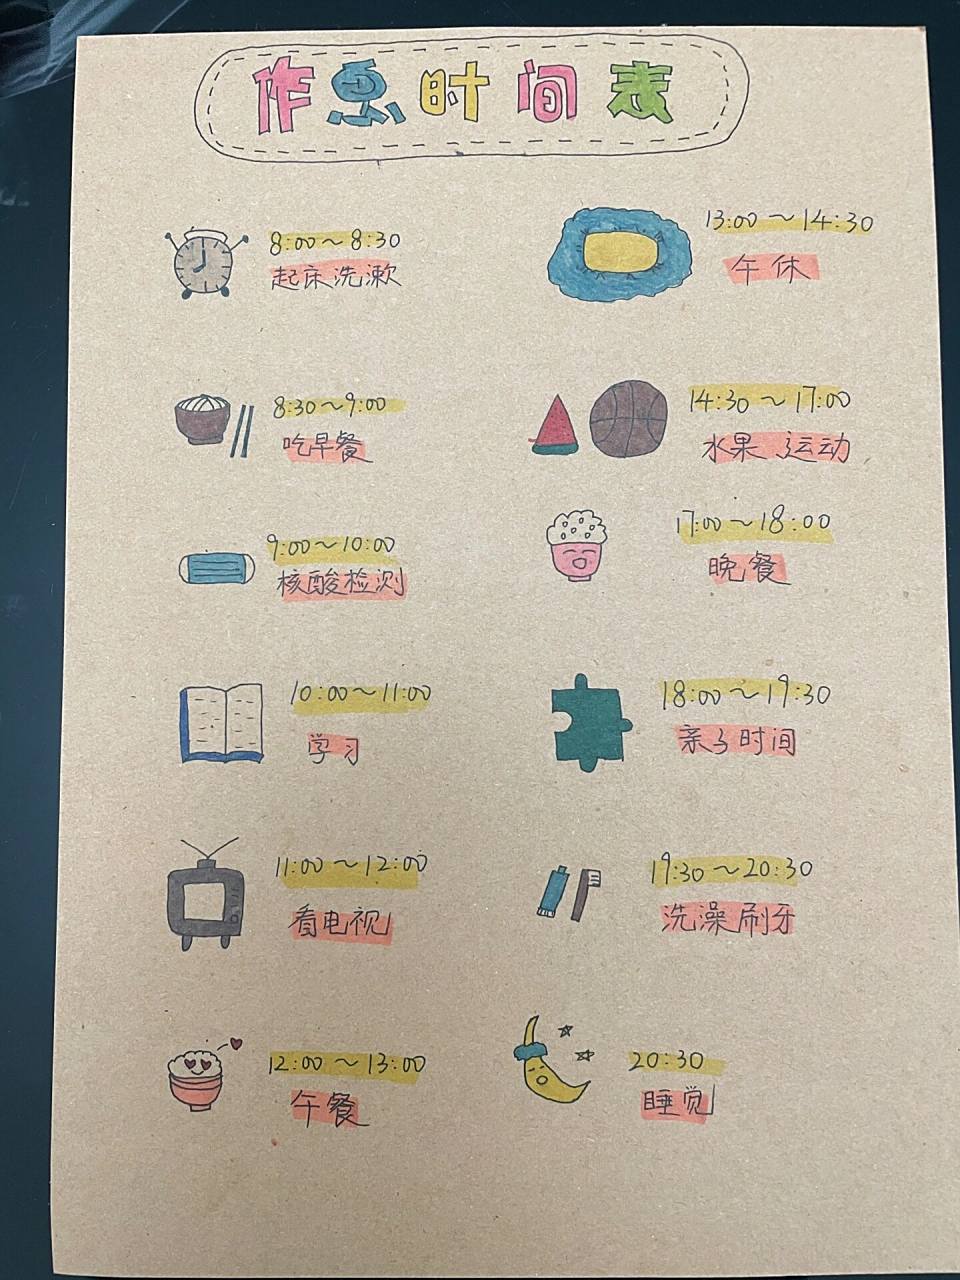 作息时间表
8:00～8:30
起床洗漱
8:30～9:00
吃早餐
9:00～10:00
核酸检测
10:00～11:00
学习
11:00～12:00
看电视
12:00～13:00
午餐
13:00～14:30
午休
14:30～17:00
水果 运动
17:00～18:00
晚餐
18:00～19:30
亲子时间
19:30～20:30
洗澡刷牙
20:30
睡觉